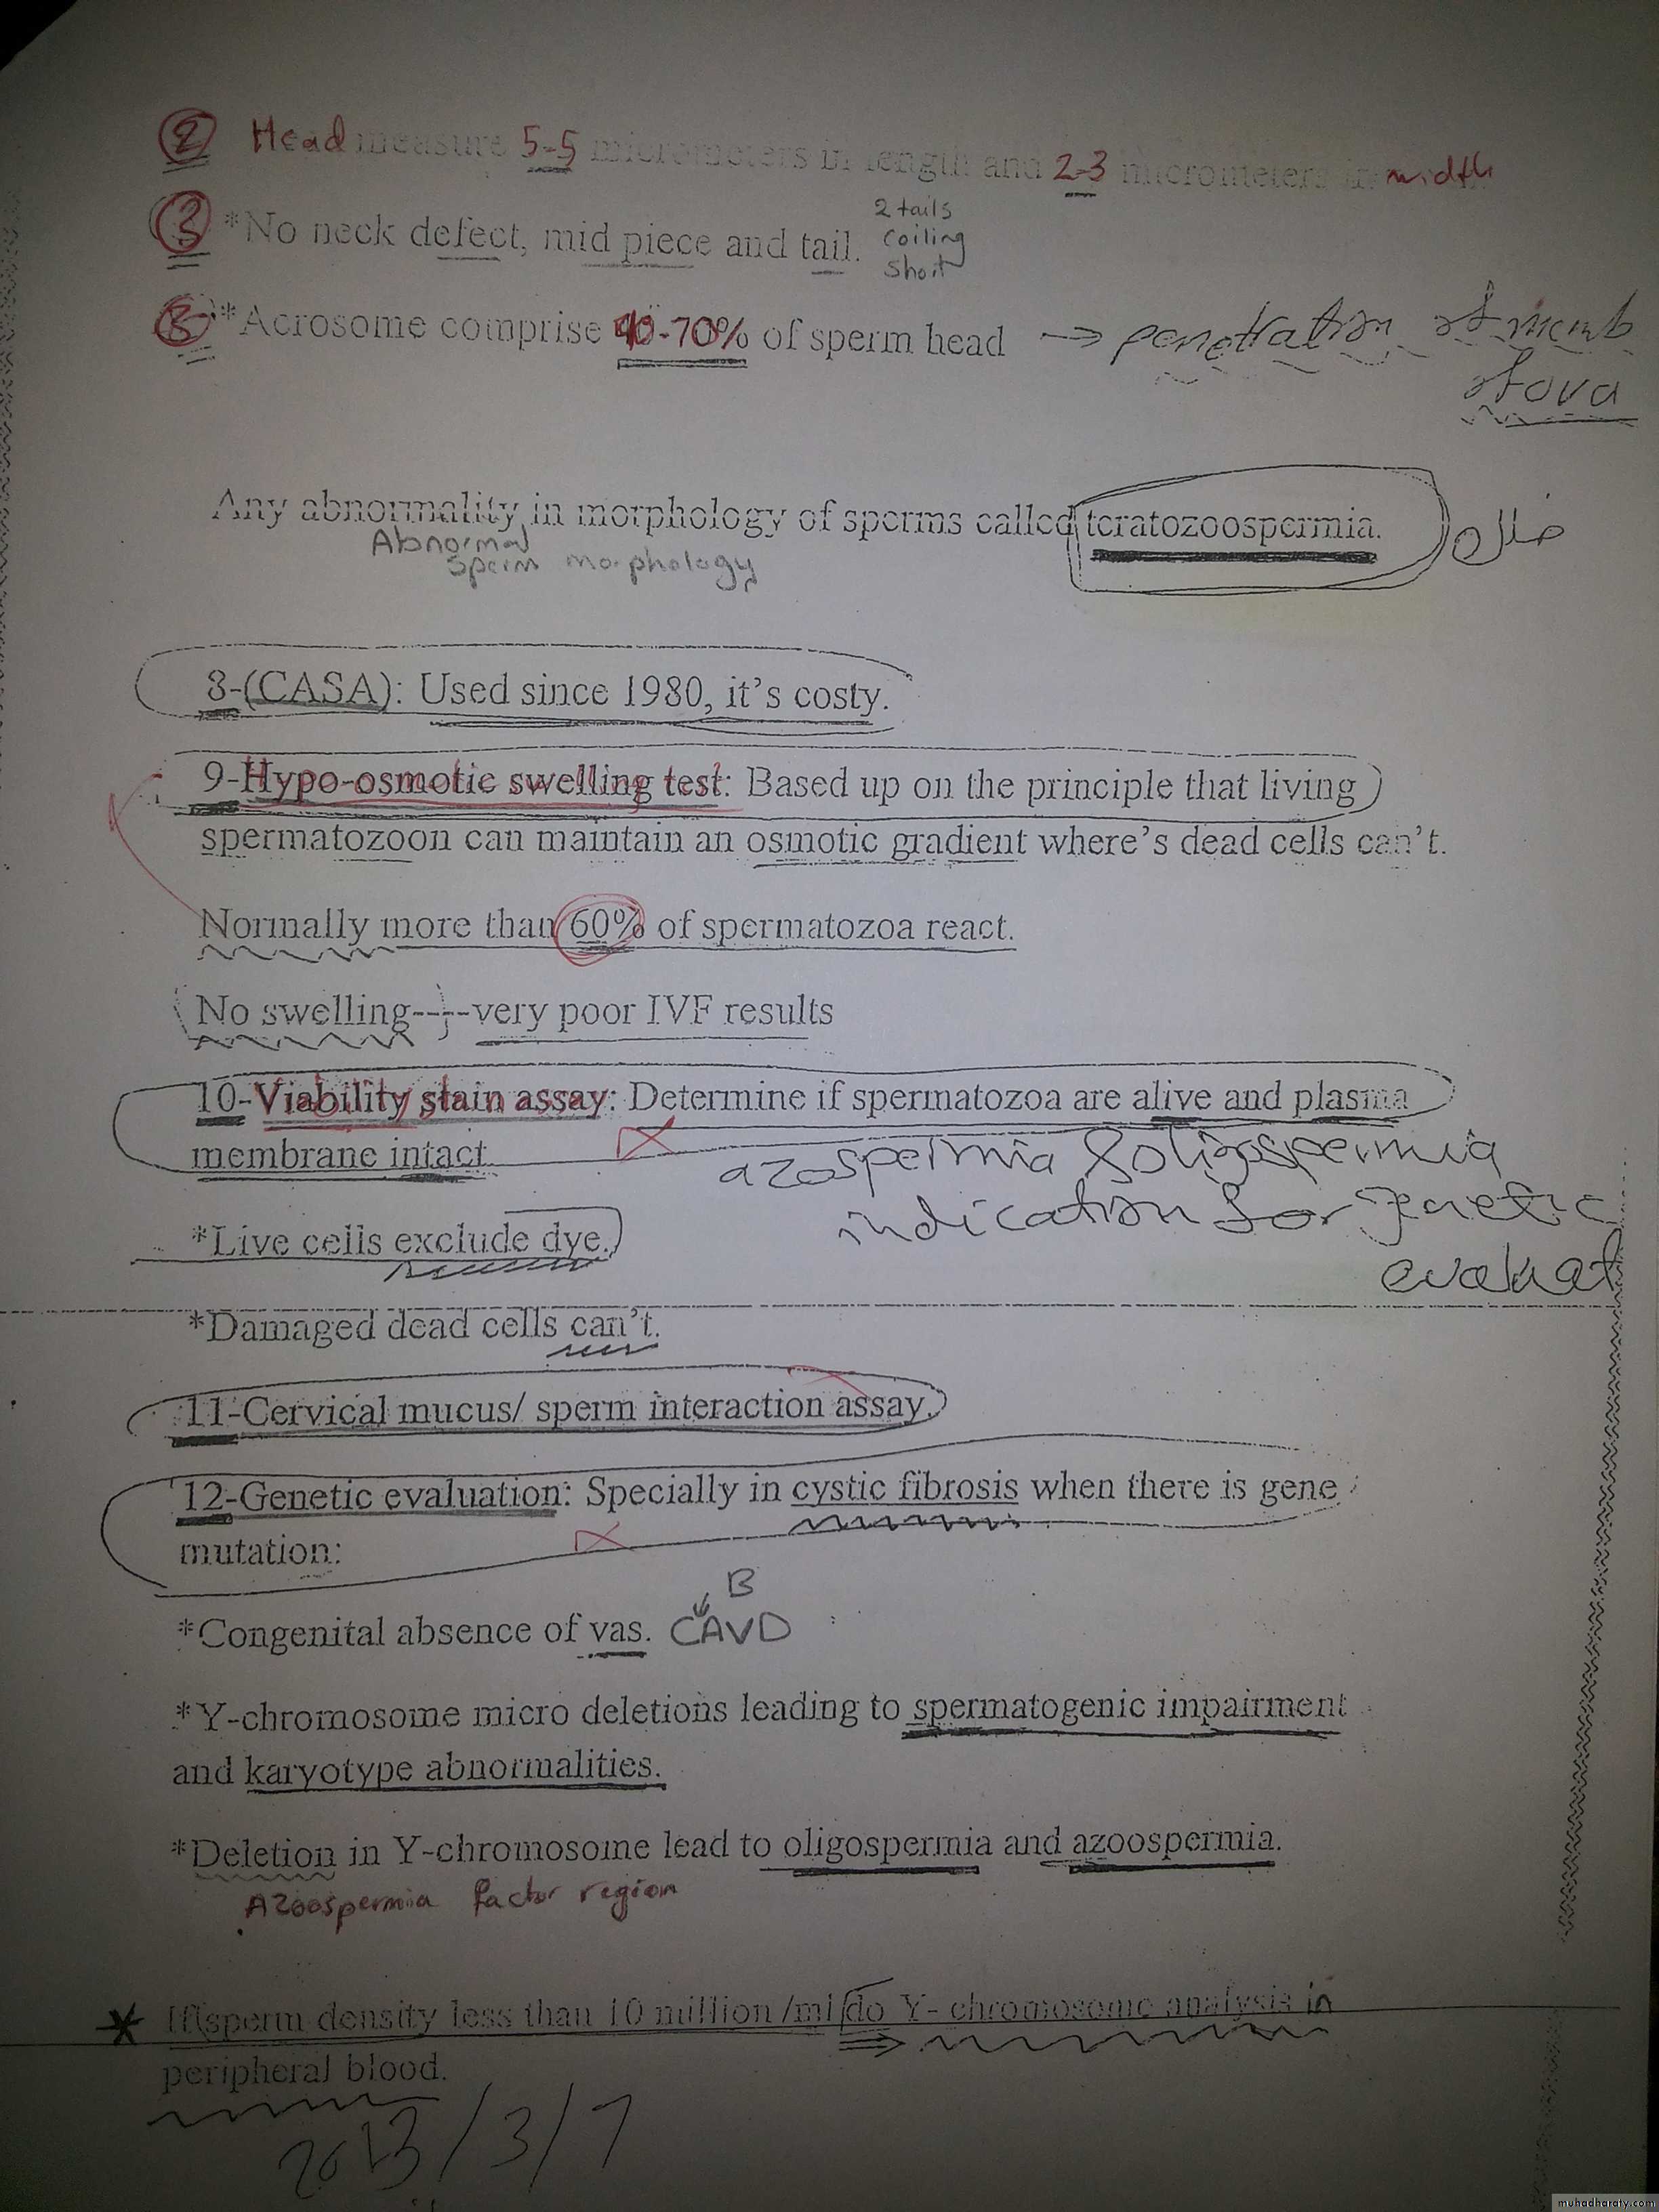 2 Head measure 5-5 micrometers in length and 2-3 micrometers in width
3 *No neck defect, mid piece and tail.
2 tails
coiling
short
*Acrosome comprise 40-70% of sperm head → penetration of memb
of ova
Any abnormality in morphology of sperms called teratozoospermia.
Abnormal
sperm morphology
8-(CASA): Used since 1980, it's costy.
9-Hypo-osmotic swelling test: Based up on the principle that living
spermatozoon can maintain an osmotic gradient where's dead cells can't.
Normally more than 60% of spermatozoa react.
No swelling----very poor IVF results
10-Viability stain assay: Determine if spermatozoa are alive and plasma
membrane intact
azospermia & oligospermia
indication for genetic
evaluat
*Live cells exclude dye.
*Damaged dead cells can't.
11-Cervical mucus/ sperm interaction assay.
12-Genetic evaluation: Specially in cystic fibrosis when there is gene
mutation:
B
*Congenital absence of vas. CAVD
*Y-chromosome micro deletions leading to spermatogenic impairment
and karyotype abnormalities.
*Deletion in Y-chromosome lead to oligospermia and azoospermia.
Azoospermia factor region
If sperm density less than 10 million /ml do Y- chromosome analysis in
peripheral blood.
2013/3/7
muhadharaty.com